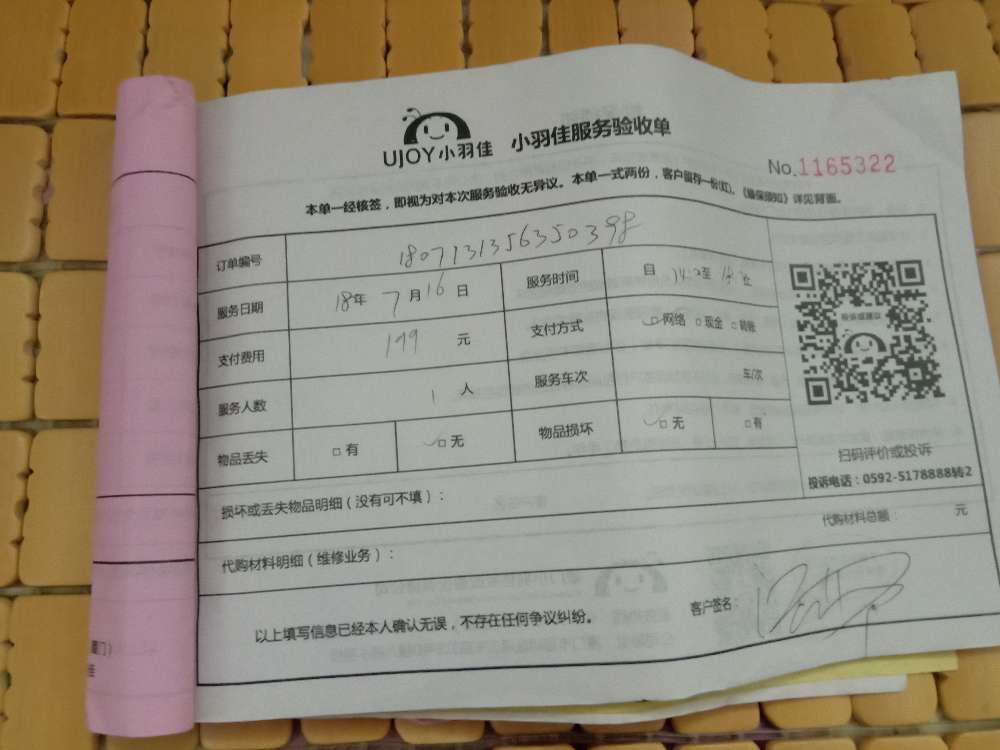 UJOY小羽佳 小羽佳服务验收单
No.1165322
本单一经核签，即视为对本次服务验收无异议。本单一式两份，客户留存一份(红)。《确保须知》详见背面。
订单编号 1807131356350398
服务日期 18年 7月16日 服务时间 自 14:至
支付费用 199 元 支付方式 □网络 □现金 □转账
服务人数 1 人 服务车次 车/次
物品丢失 □有 □无 物品损坏 □无 □有
投诉或建议
扫码评价或投诉
投诉电话：0592-5178888转2
损坏或丢失物品明细（没有可不填）：
代购材料总额： 元
代购材料明细（维修业务）：
以上填写信息已经本人确认无误，不存在任何争议纠纷。 客户签名：